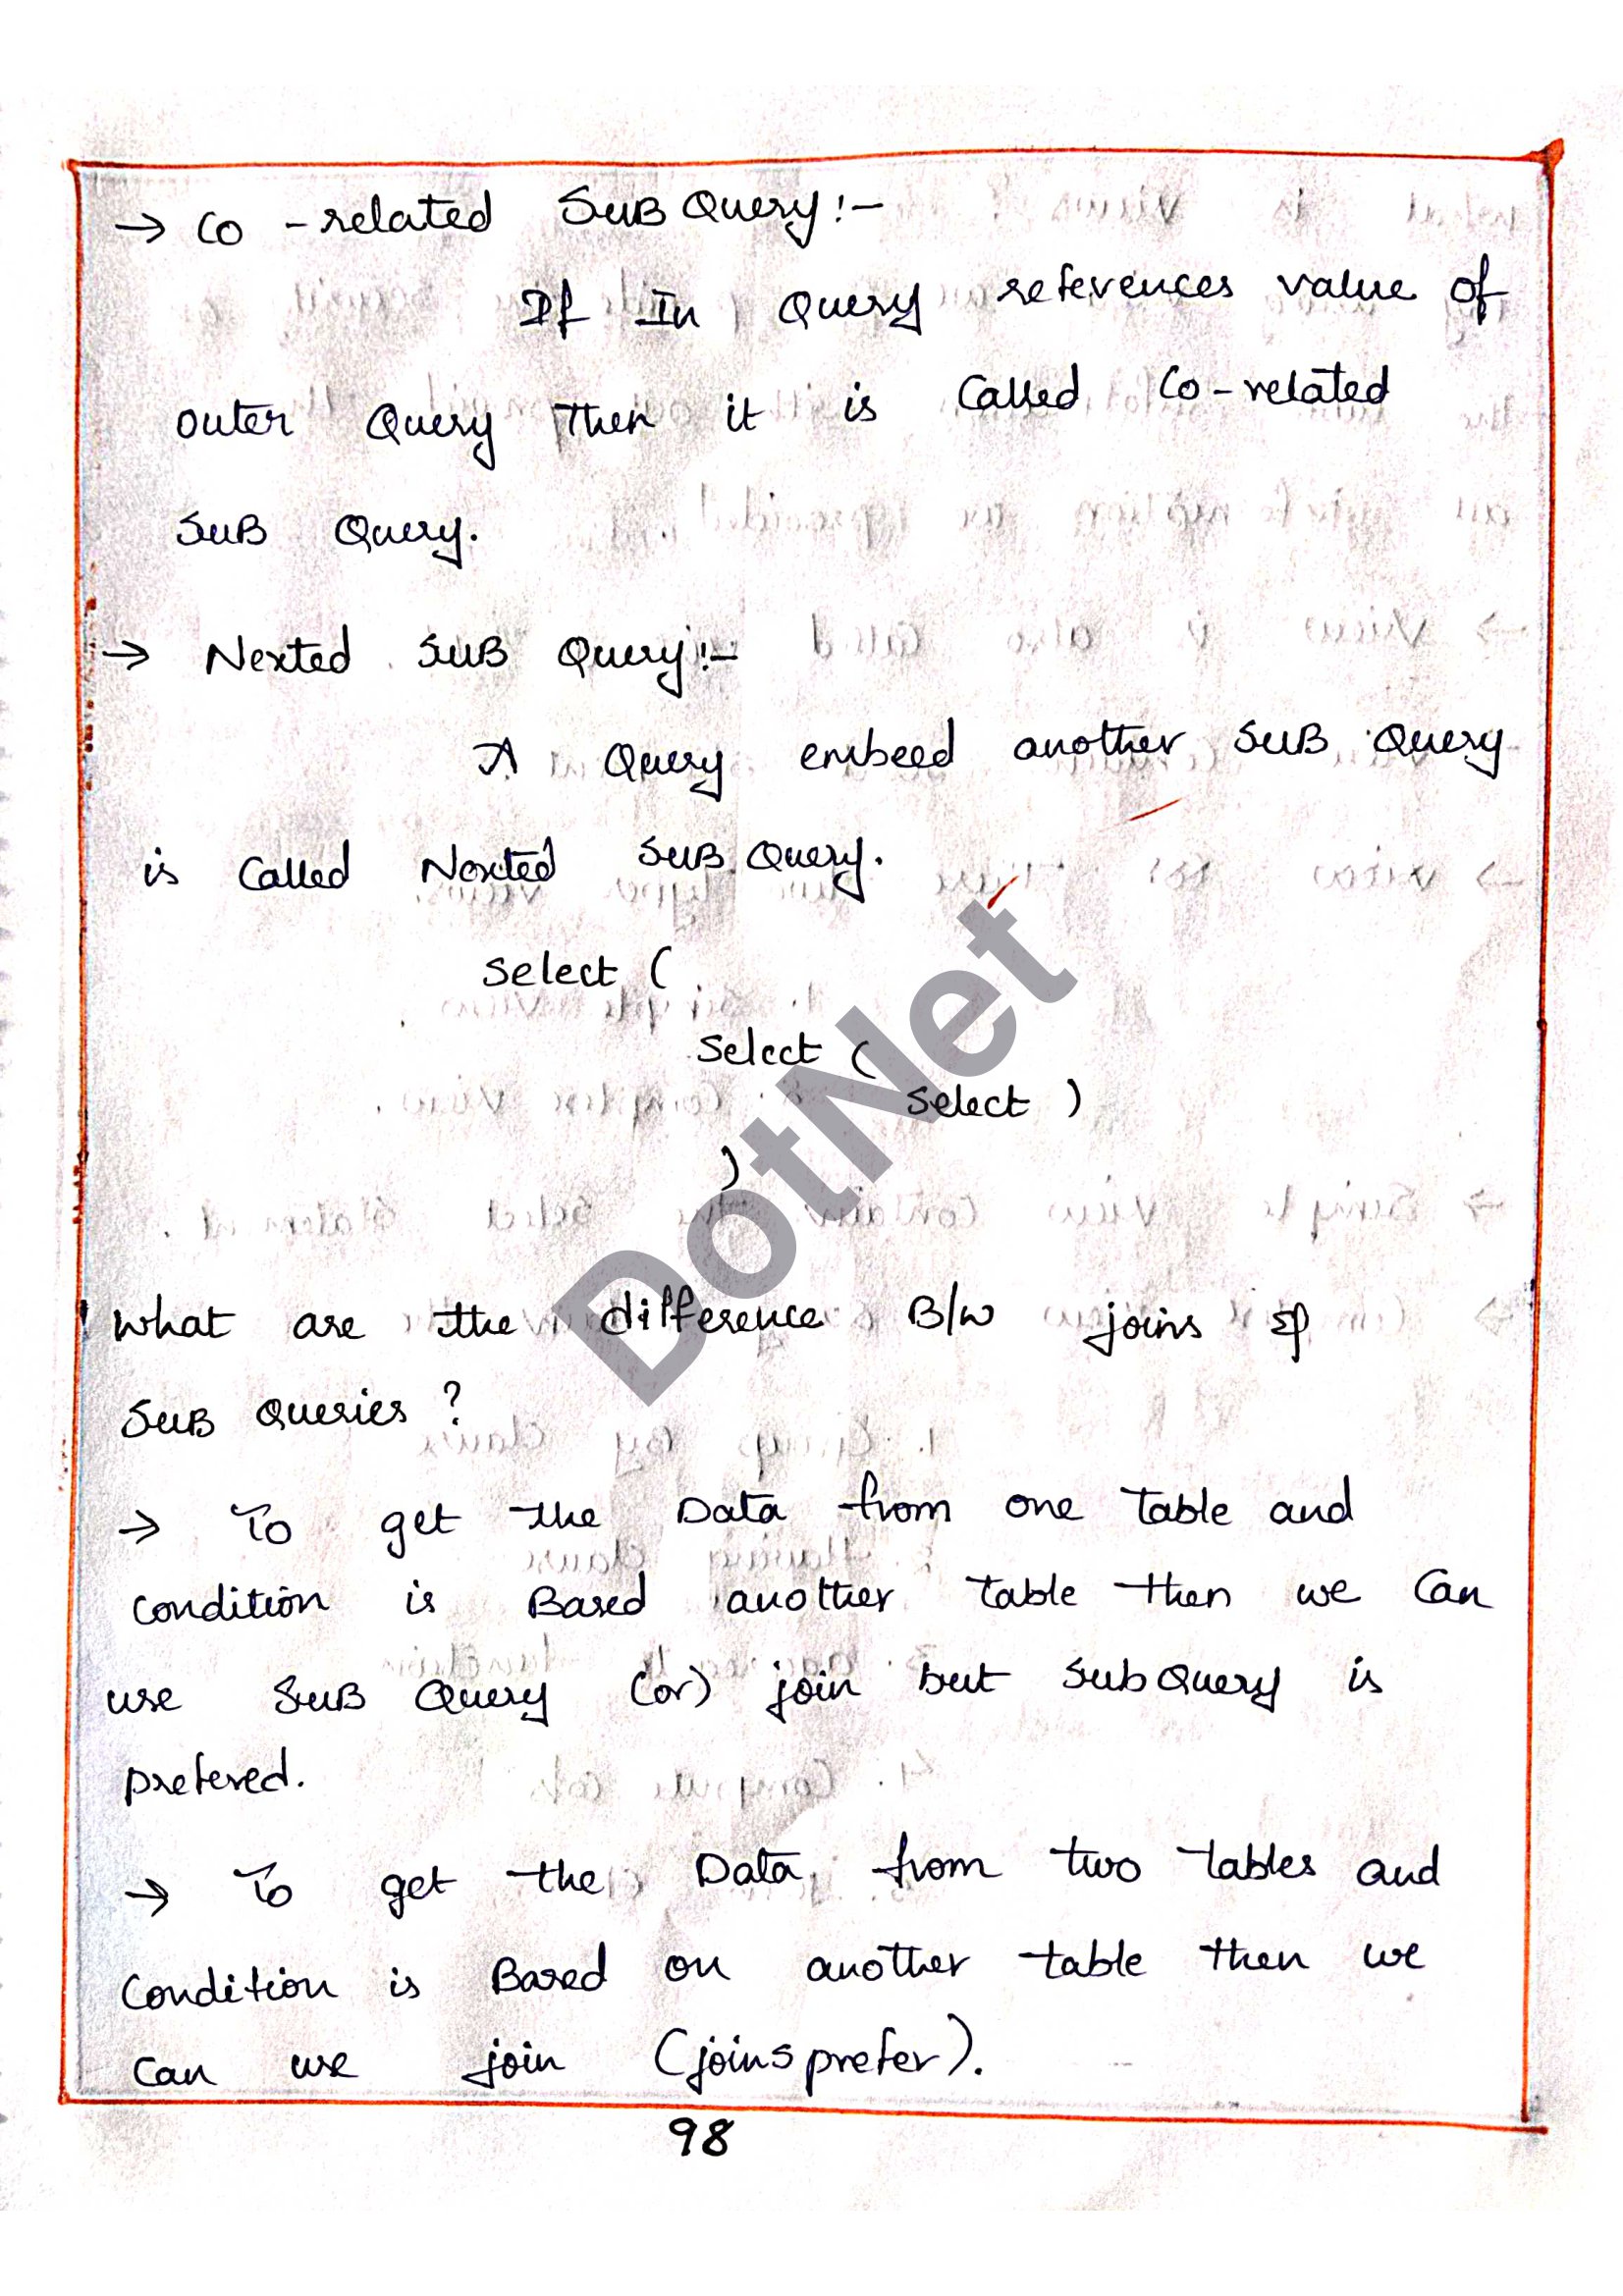 → Co-related SUB Query:-
If In Query references value of
outer Query Then it is Called Co-related
SUB Query.
→ Nexted SUB Query:-
A Query embeed another SUB Query
is Called Nexted SUB Query.
Select (
Select (
Select )
)
What are the difference B/w joins &
SUB Queries ?
→ To get the Data from one Table and
condition is Based another table then we Can
use SUB Query (or) join but SubQuery is
prefered.
→ To get the Data from two tables and
Condition is Based on another table then we
Can use join (joins prefer).
98
DotNet